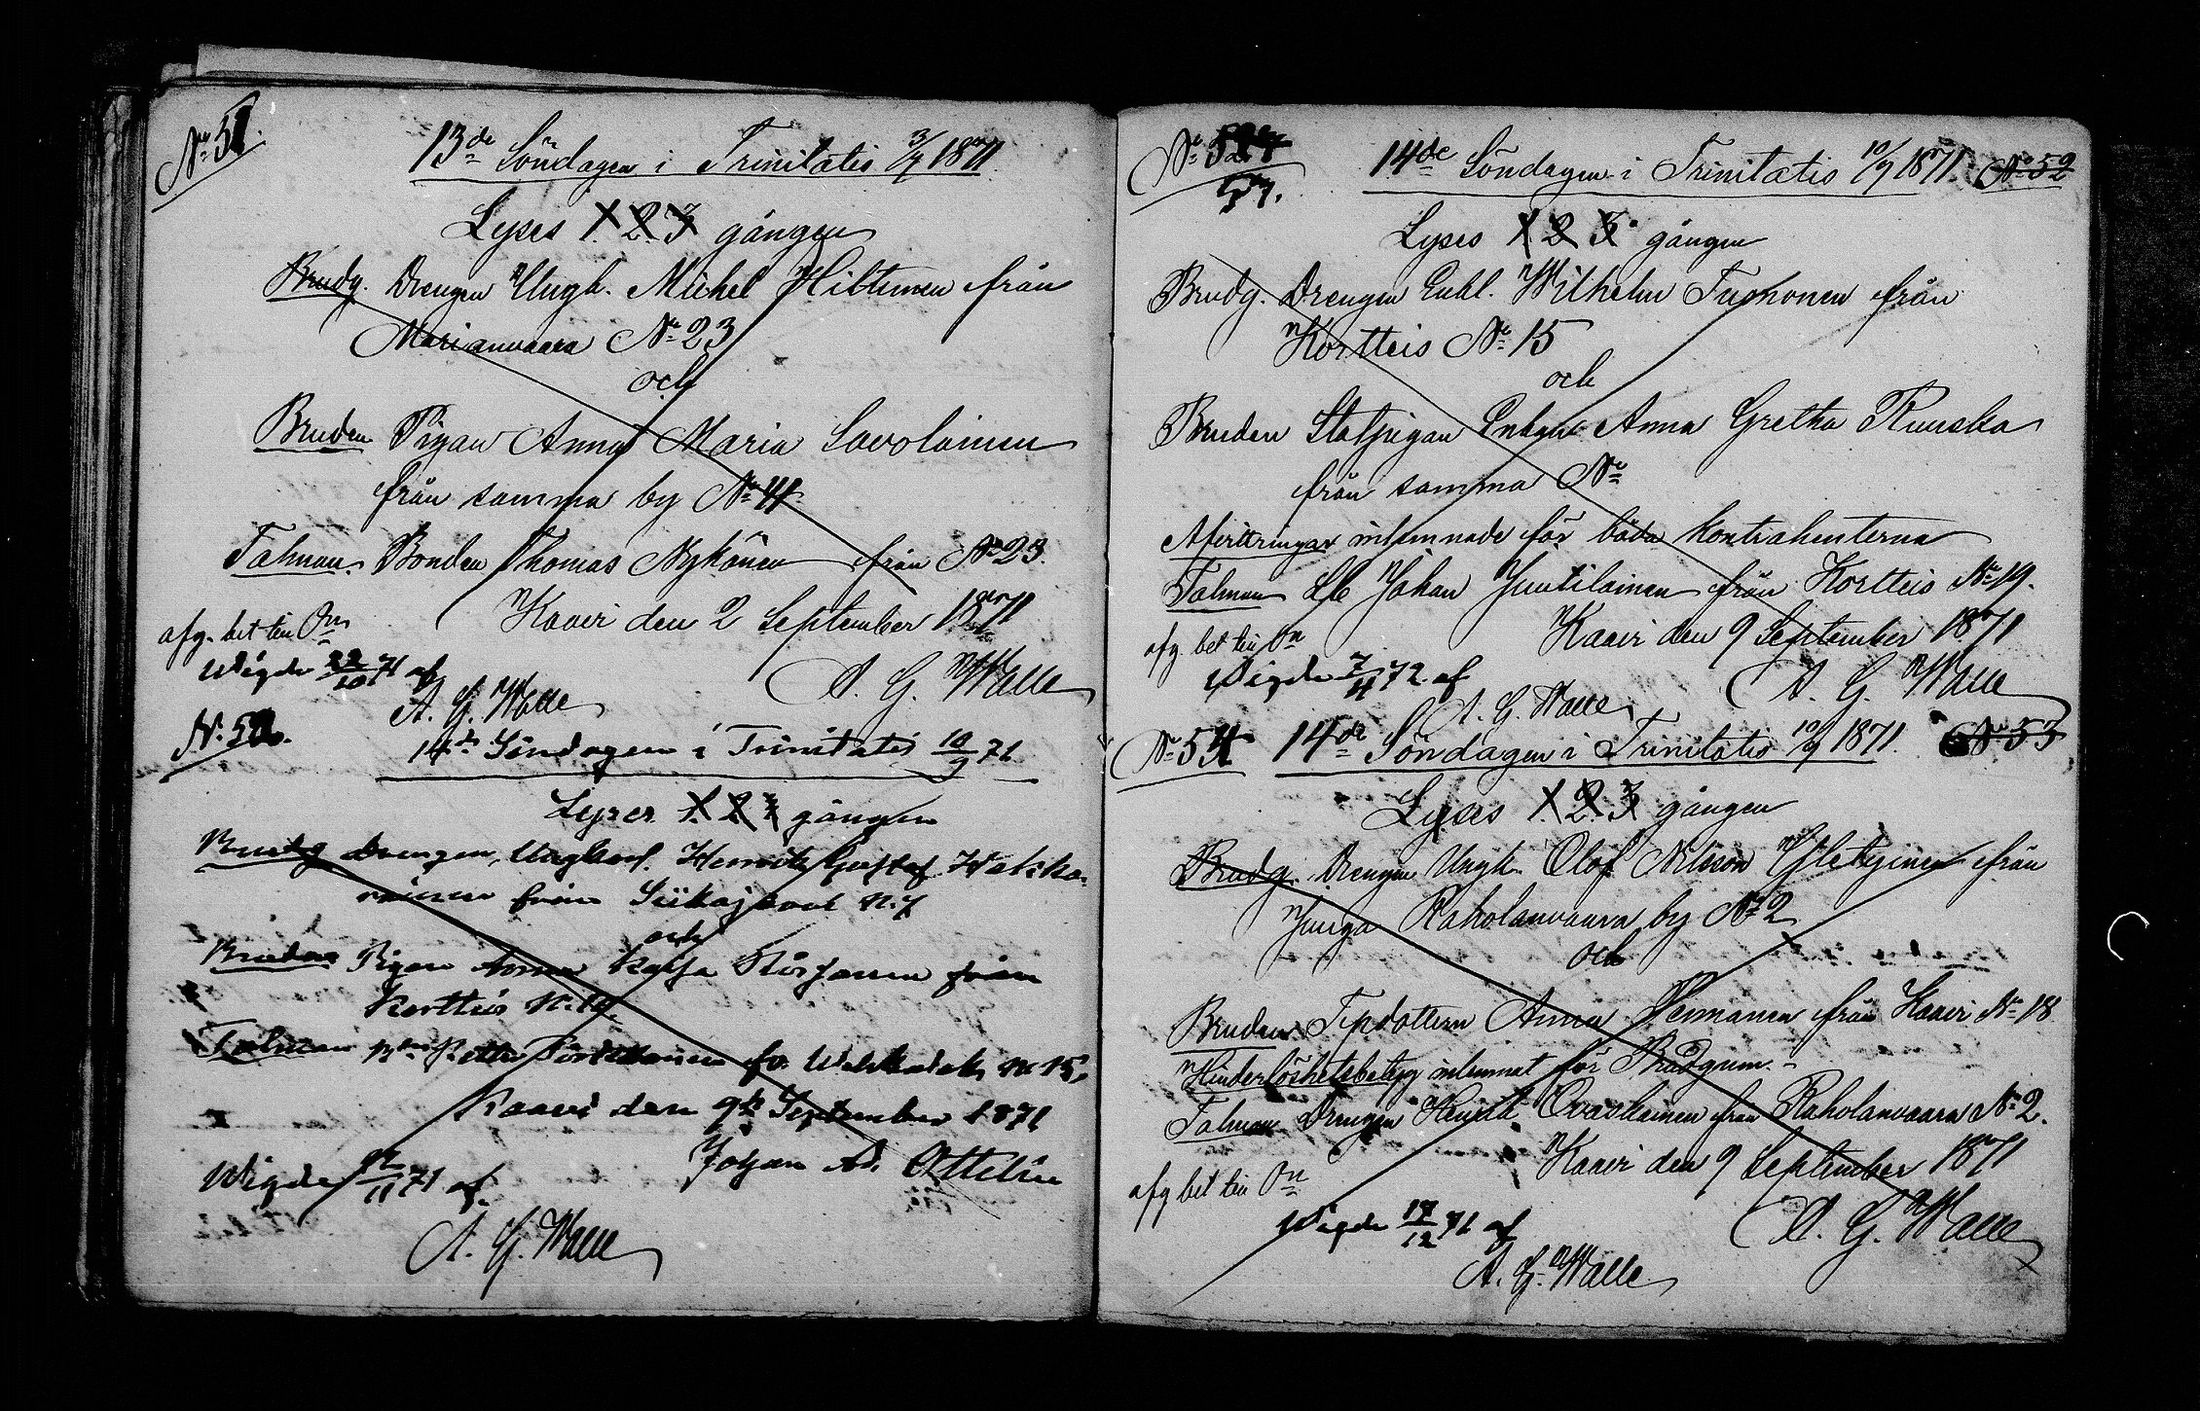 No 51.
13de Söndagen i Trinitatis 3/9 1871.
Lyses 1. 2. 3 gången
Brudg. Drengen Ungk. Michel Hiltunen från
Marianvaara No 23
och
Bruden Pigan Anna Maria Savolainen
från samma by No 11.
Talman. Bonden Thomas Nykänen från No 23.
Kaavi den 2 September 1871
afg. bet tin
Wigde 22/10 71 af
A. G. Walle
A. G. Walle
N. 52.
14de Söndagen i Trinitatis 10/9 71
Lyses 1. 2. 3 gången
Brudg Drengen, Ungkarl. Henrik Gustaf Hakka-
rainen från Siikajärvi N. 7
och
Bruden Pigan Anna Kaisa från
Kortteis N. 10.
Talman Petter fr. No 15,
Kaavi den 9de September 1871
Johan Ad. Ottelin
Wigde 12/11 71 af.
A. G. Walle
No 52
57.
14de Söndagen i Trinitatis 10/9 1871. No 52
Lyses 1. 2. 3. gången
Brudg. Drengen Enkl. Wilhelm Tuononen från
Kortteis No 15
och
Bruden Statpigan Enkan Anna Gretha Ruuska
från samma No
Afvittringar inlemnade för båda kontrahenterna
Talman Johan Juutilainen från Kortteis No 19.
Kaavi den 9 September 1871
afg. bet tin
Wigde 7/4 72. af
A. G. Walle
A. G. Walle
No 54 14de Söndagen i Trinitatis 10/9 1871. No 53
Lyses 1. 2. 3 gången
Brudg. Drengen Ungk. Olof Nilsson från
Junga Raholanvaara by No 2
och
Bruden Anna från Kaavi No 18
Hinderlöshetsbetyg inlemnat för Brudgum.
Talman Drengen Henrik Ovaskainen från Raholanvaara No 2.
Kaavi den 9 September 1871
afg bet tin
Wigde 17/12 71 af
A. G. Walle
A. G. Walle